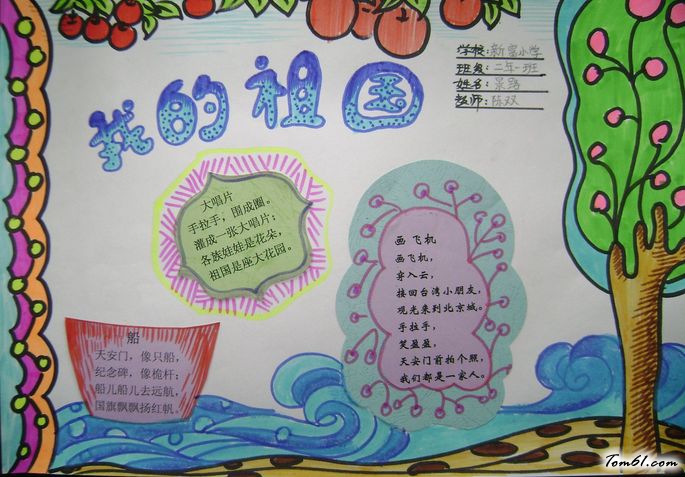 我的祖国
学校:新窑小学
班级:二年一班
姓名:景路
教师:陈双
大唱片
手拉手，围成圈。
灌成一张大唱片；
各族娃娃是花朵，
祖国是座大花园。
画飞机
画飞机，
穿入云，
接回台湾小朋友，
观光来到北京城。
手拉手，
笑盈盈，
天安门前拍个照，
我们都是一家人。
船
天安门，像只船，
纪念碑，像桅杆；
船儿船儿去远航，
国旗飘飘扬红帆。
Tom61.com